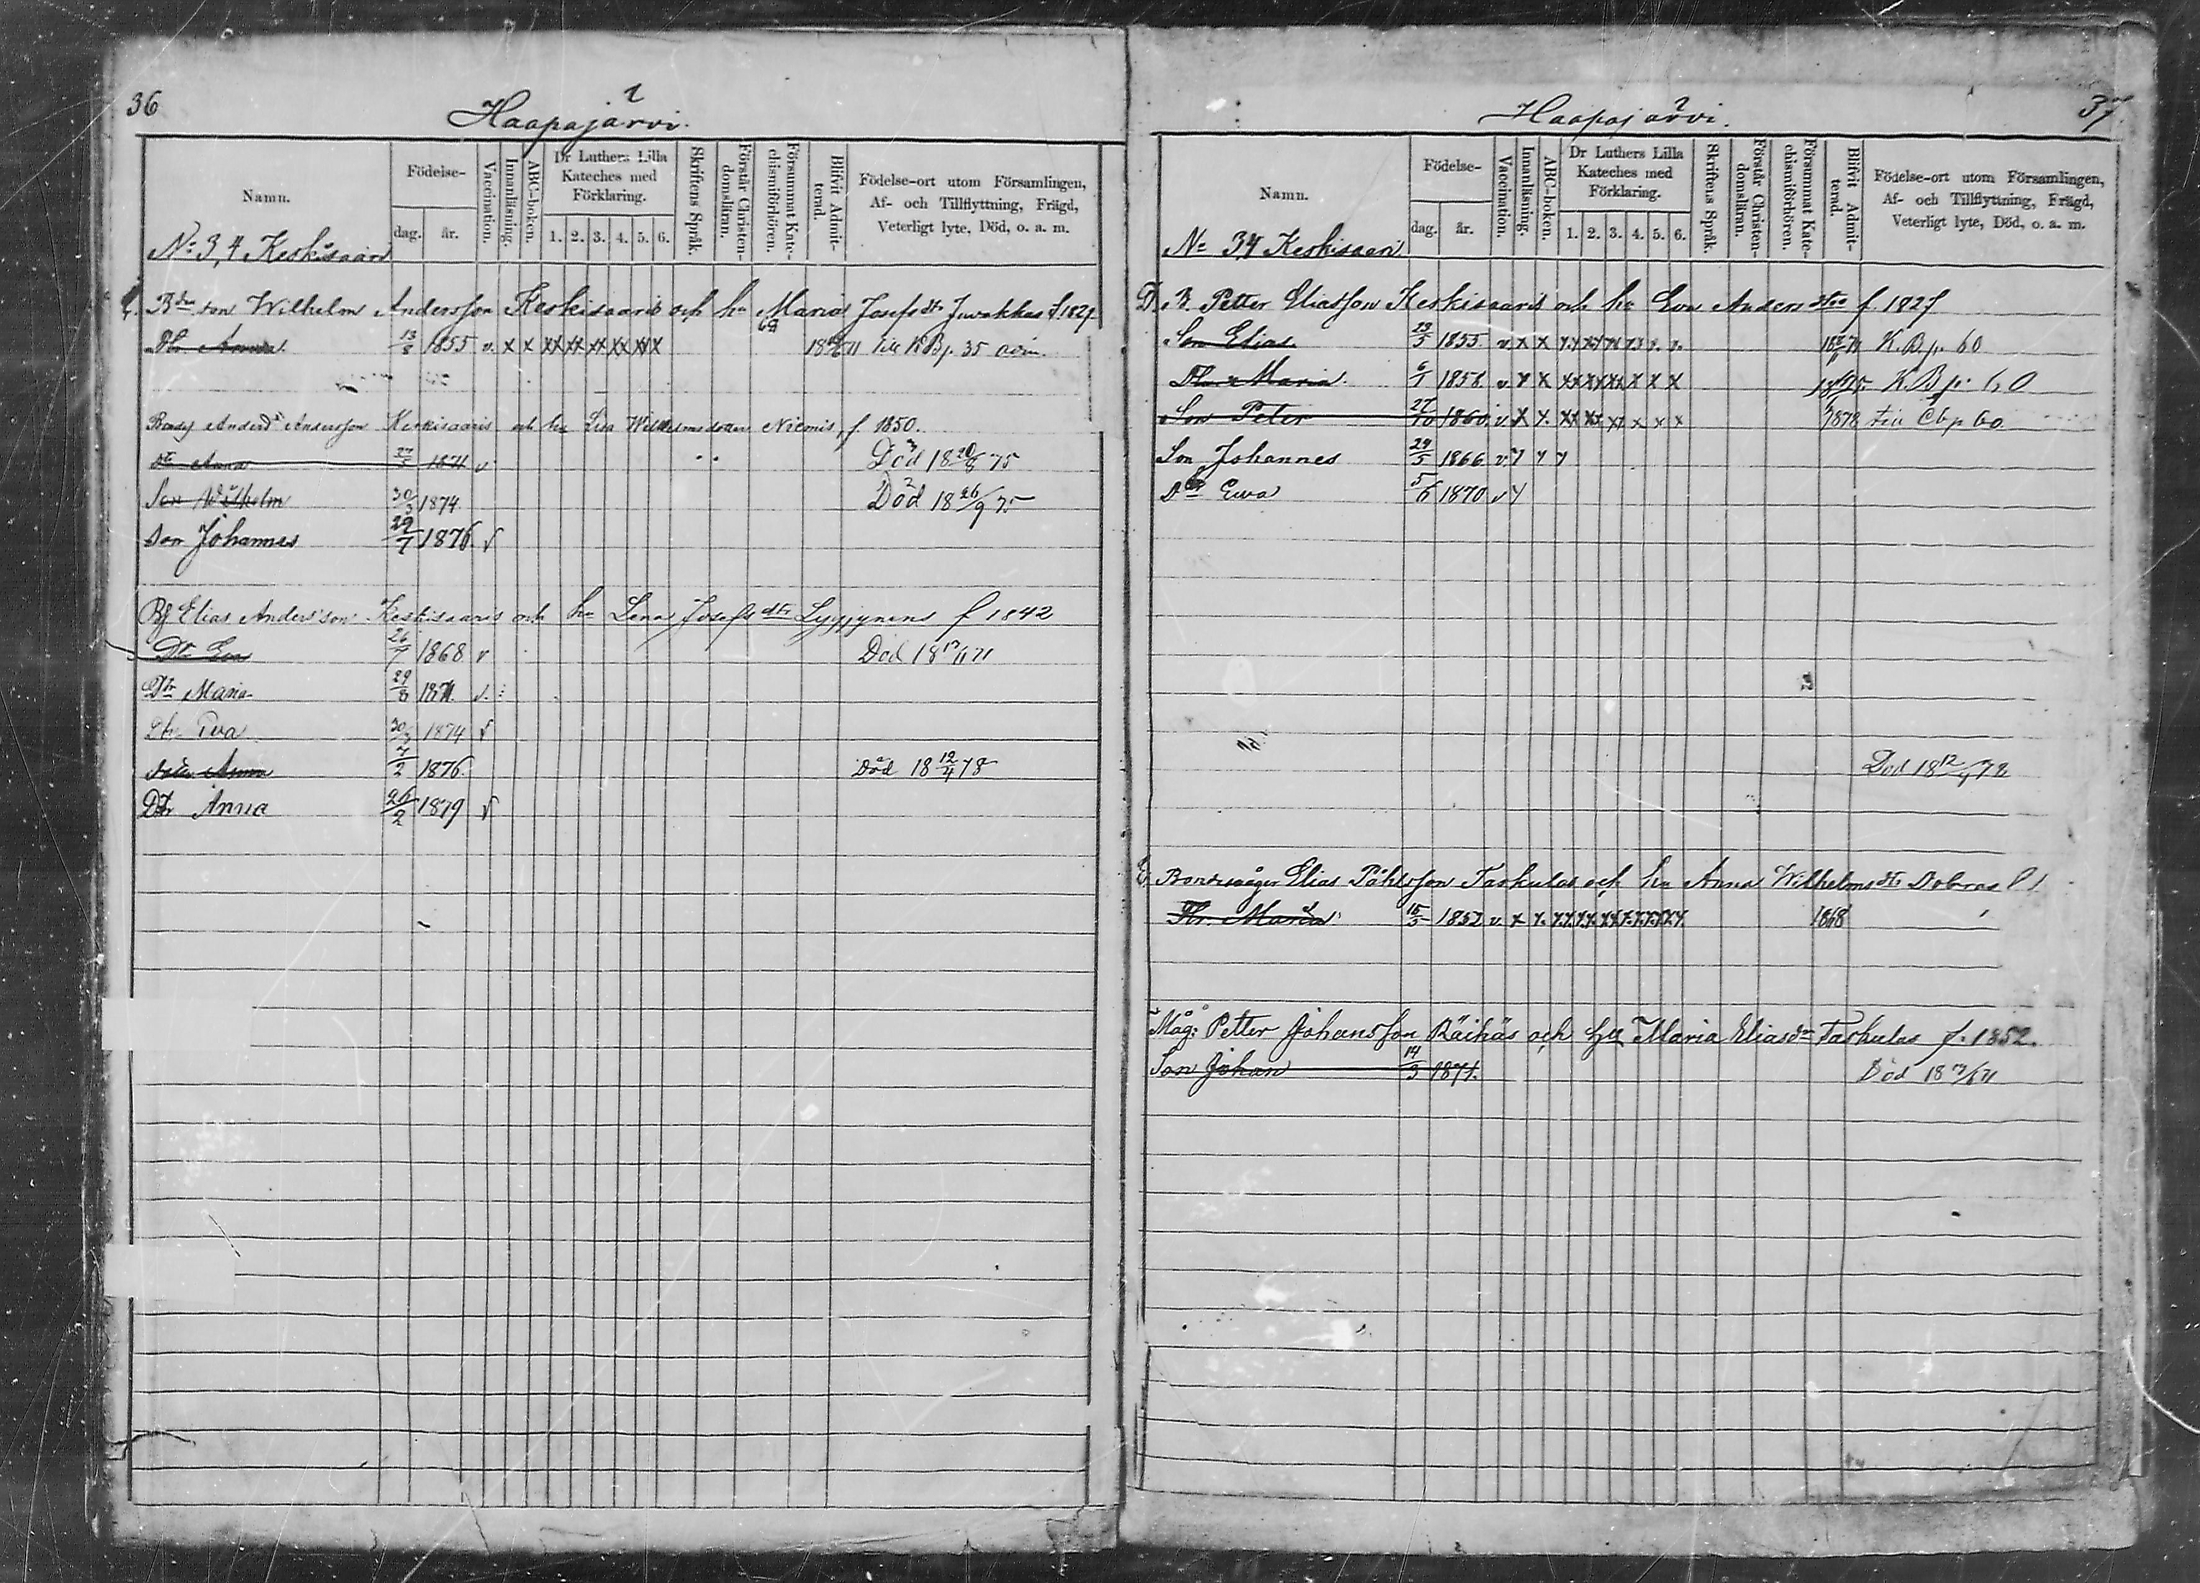 36
Haapajärvi.
Namn.
Födelse-
dag. år.
Vaccination.
Innanläsning.
ABC-boken.
Dr Luthers Lilla Kateches med Förklaring.
1. 2. 3. 4. 5. 6.
Skriftens Språk.
Förstår Christendomslären.
Försummat Katechismiförhören.
Blifvit Admitterad.
Födelse-ort utom Församlingen,
Af- och Tillflyttning, Frägd,
Veterligt lyte, Död, o. a. m.
No 3,4 Keskisaari
Bdeson Wilhelm Andersson Keskisaaris och hu Maria Josefsdr Juvakkas f. 1827
Dtr Anna 13/8 1855 v. x x xx xx xx xx xx x 71 till KB p. 35
Anders Andersson Keskisaaris och hu Lisa Wilhelmsdotter Niemis, f. 1850.
Dtr Anna 27/5 1871 v Död 18 20/8 75
Son Wilhelm 30/3 1874 Död 18 26/9 75
Son Johannes 29/7 1876 v
Bf Elias Andersson Keskisaaris och hu Lena Josefsdtr Lyyjynens f 1842
Dtr Eva 26/7 1868 v Död 18 71
Dtr Maria 29/8 1871. v.
Dtr Eva 30/3 1874 v
Anna 4/2 1876. Död 18 12/4 78
Dtr Anna 26/2 1879 v
37
Haapajärvi.
Namn.
Födelse-
dag. år.
Vaccination.
Innanläsning.
ABC-boken.
Dr Luthers Lilla Kateches med Förklaring.
1. 2. 3. 4. 5. 6.
Skriftens Språk.
Förstår Christendomsläran.
Försummat Katechismiförhören.
Blifvit Admitterad.
Födelse-ort utom Församlingen,
Af- och Tillflyttning, Frägd,
Veterligt lyte, Död, o. a. m.
No 3,4 Keskisaari
D. B. Petter Eliasson Keskisaaris och hu Eva Andersdtr f. 1827
Son Elias 23/5 1855 v. x x K.B p. 60
Maria 6/1 1858 v x x xx xx xx x x x K.B p. 60
Son Peter 27/10 1860 v x x. xx xx xx x x x 1878 till Cb p 60
Son Johannes 29/5 1866 v
Dtr Ewa 5/6 1870 v
Död 18 12/4 78
E. Bondemågen Elias Påhlsson Taskulas och hu Anna Wilhelmsdtr Dobras
Dtr. Maria 15/5 1852 v. x x. 1868
Måg: Petter Johansson Räihäs och hu Maria Eliasdr Taskulas f. 1852.
Son Johan 14/3 1871. Död 18 71